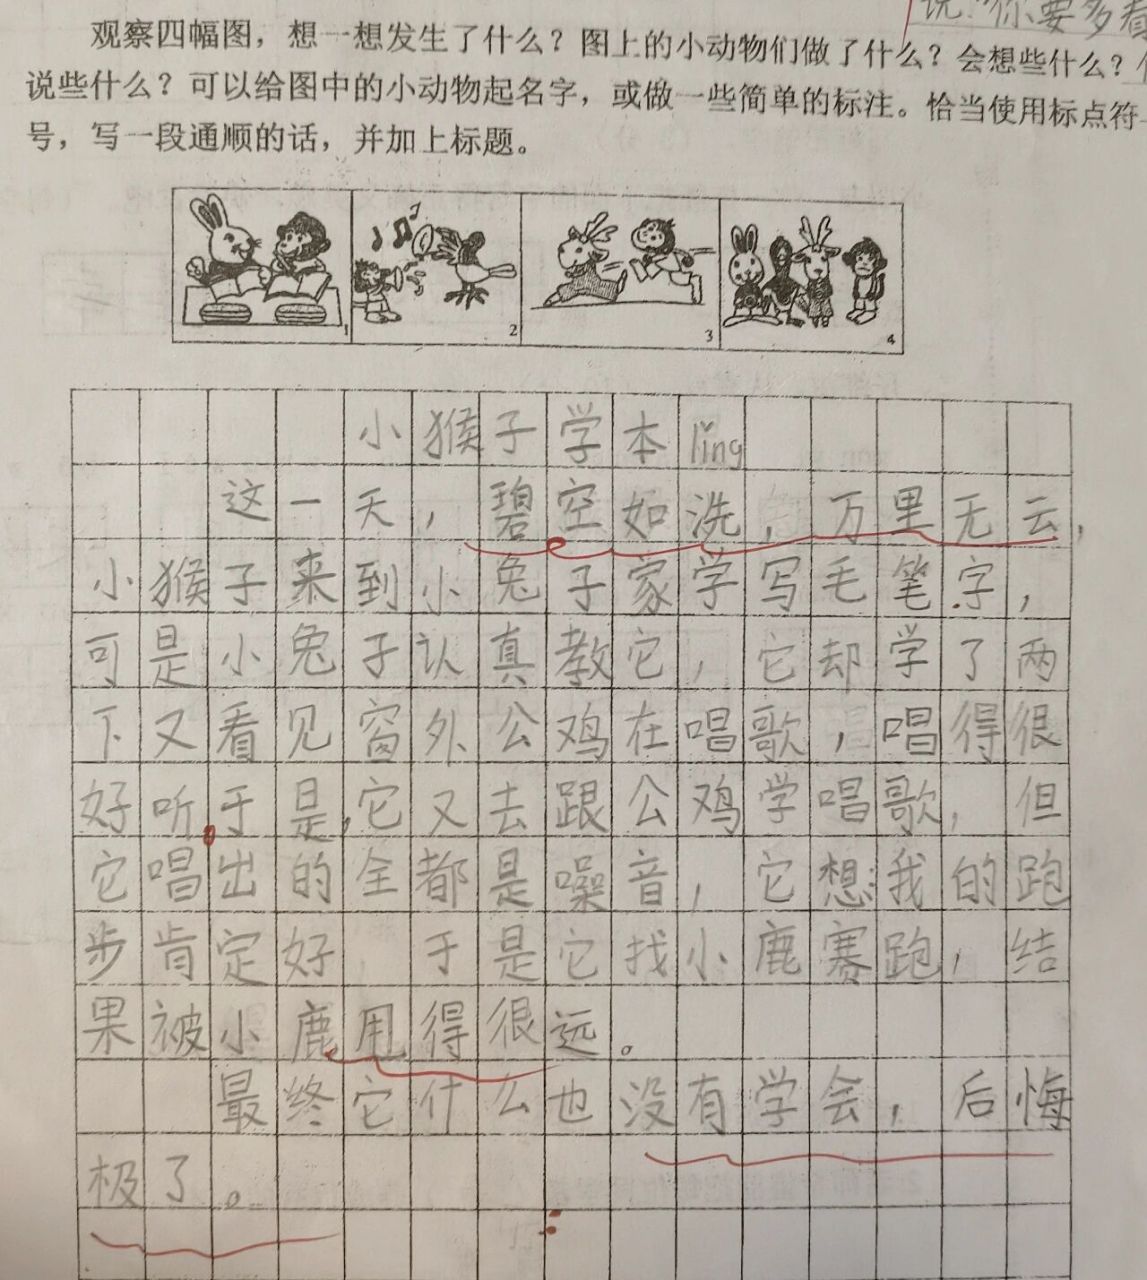 说:“你要多看
观察四幅图，想一想发生了什么？图上的小动物们做了什么？会想些什么？
说些什么？可以给图中的小动物起名字，或做一些简单的标注。恰当使用标点符
号，写一段通顺的话，并加上标题。
1
2
3
4
小猴子学本lǐng
这一天，碧空如洗，万里无云，
小猴子来到小兔子家学写毛笔字，
可是小兔子认真教它，它却学了两
下又看见窗外公鸡在唱歌，唱得很
好听，于是，它又去跟公鸡学唱歌，但
它唱出的全都是噪音，它想：我的跑
步肯定好，于是它找小鹿赛跑，结
果被小鹿甩得很远。
最终它什么也没有学会，后悔
极了。